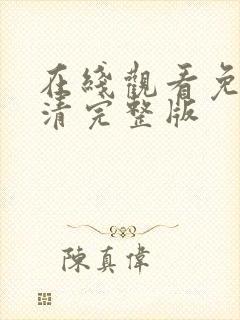 在綫觀看免
清完整版
陳真偉